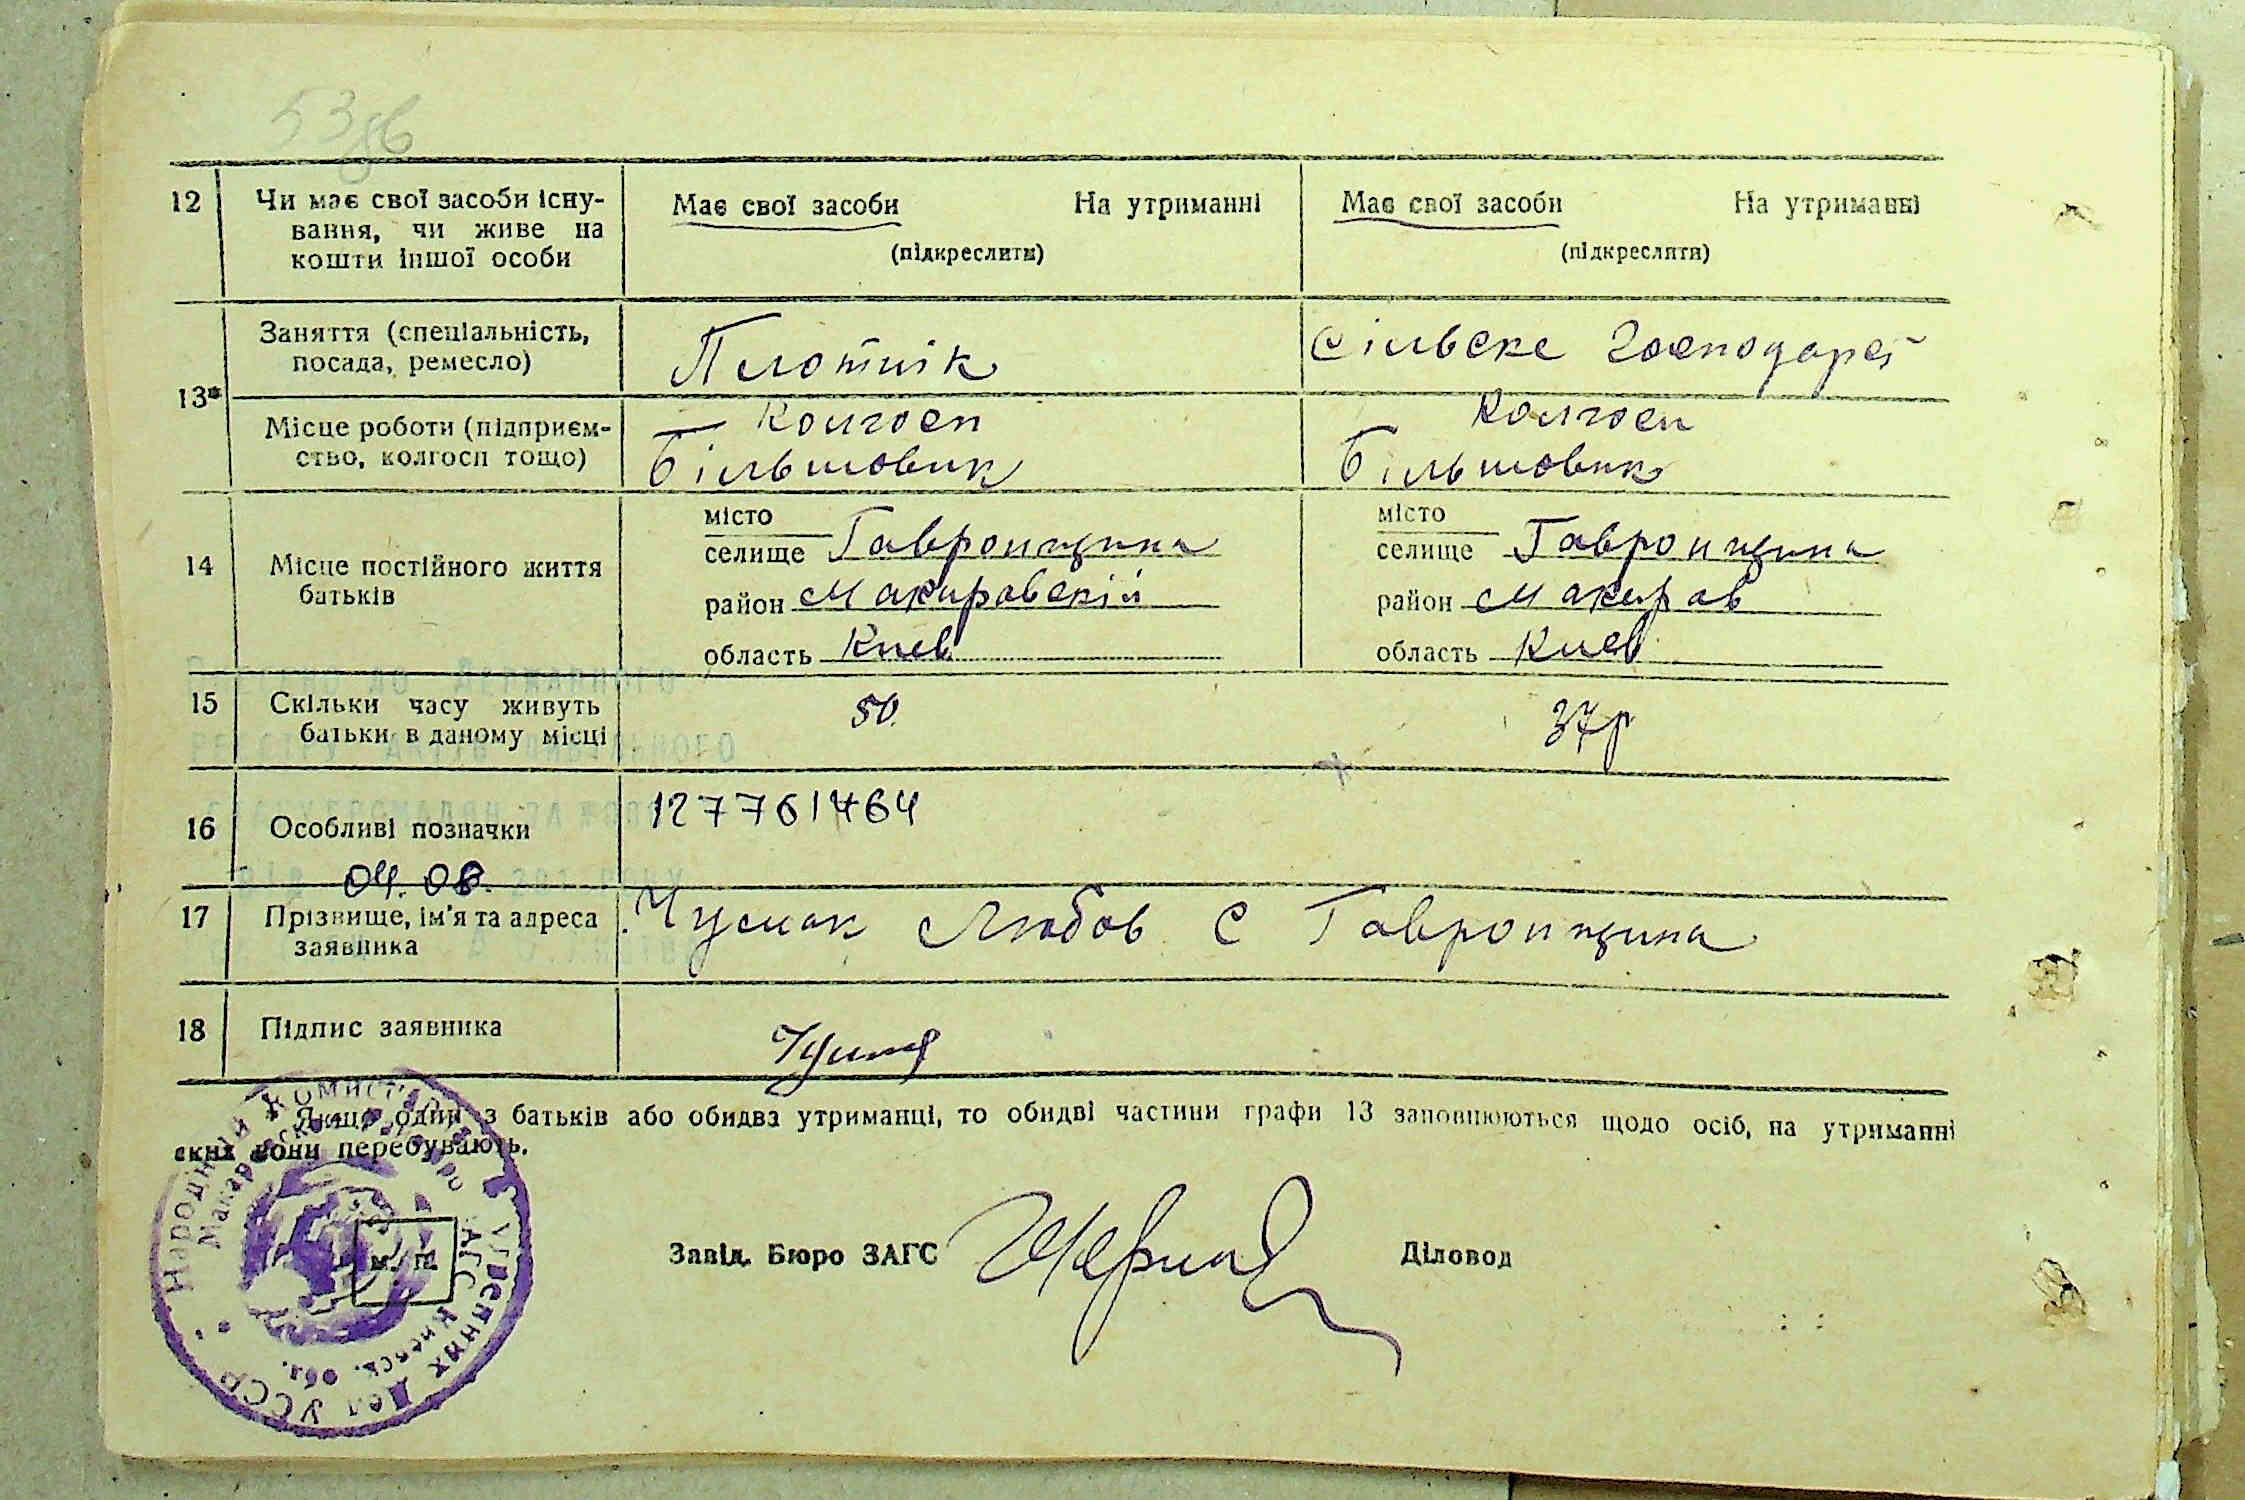 53зв
12 Чи має свої засоби існу- Має свої засоби На утриманні Має свої засоби На утриманні
вання, чи живе на (підкреслити) (підкреслити)
кошти іншої особи
13* Заняття (спеціальність, Плотнік Сільске господарст
посада, ремесло)
Місце роботи (підприєм- Колгосп Колгосп
ство, колгосп тощо) Більшовик Більшовик
14 Місце постійного життя місто місто
батьків селище Гавронщина селище Гавронщина
район Макаровскій район Макаров
область Киев область Киев
15 Скільки часу живуть 50. 37р
батьки в даному місці
16 Особливі позначки 127761464
04.08.
17 Прізвище, ім'я та адреса Чумак Любов С Гавронщина
заявника
18 Підпис заявника
* Якщо один з батьків або обидва утриманці, то обидві частини графи 13 заповнюються щодо осіб, на утриманні
яких вони перебувають.
Завід. Бюро ЗАГС Діловод
м. п.
Народный Комиссариат Внутренних Дел УССР
Макаровское Бюро ЗАГС Киевск. Обл.